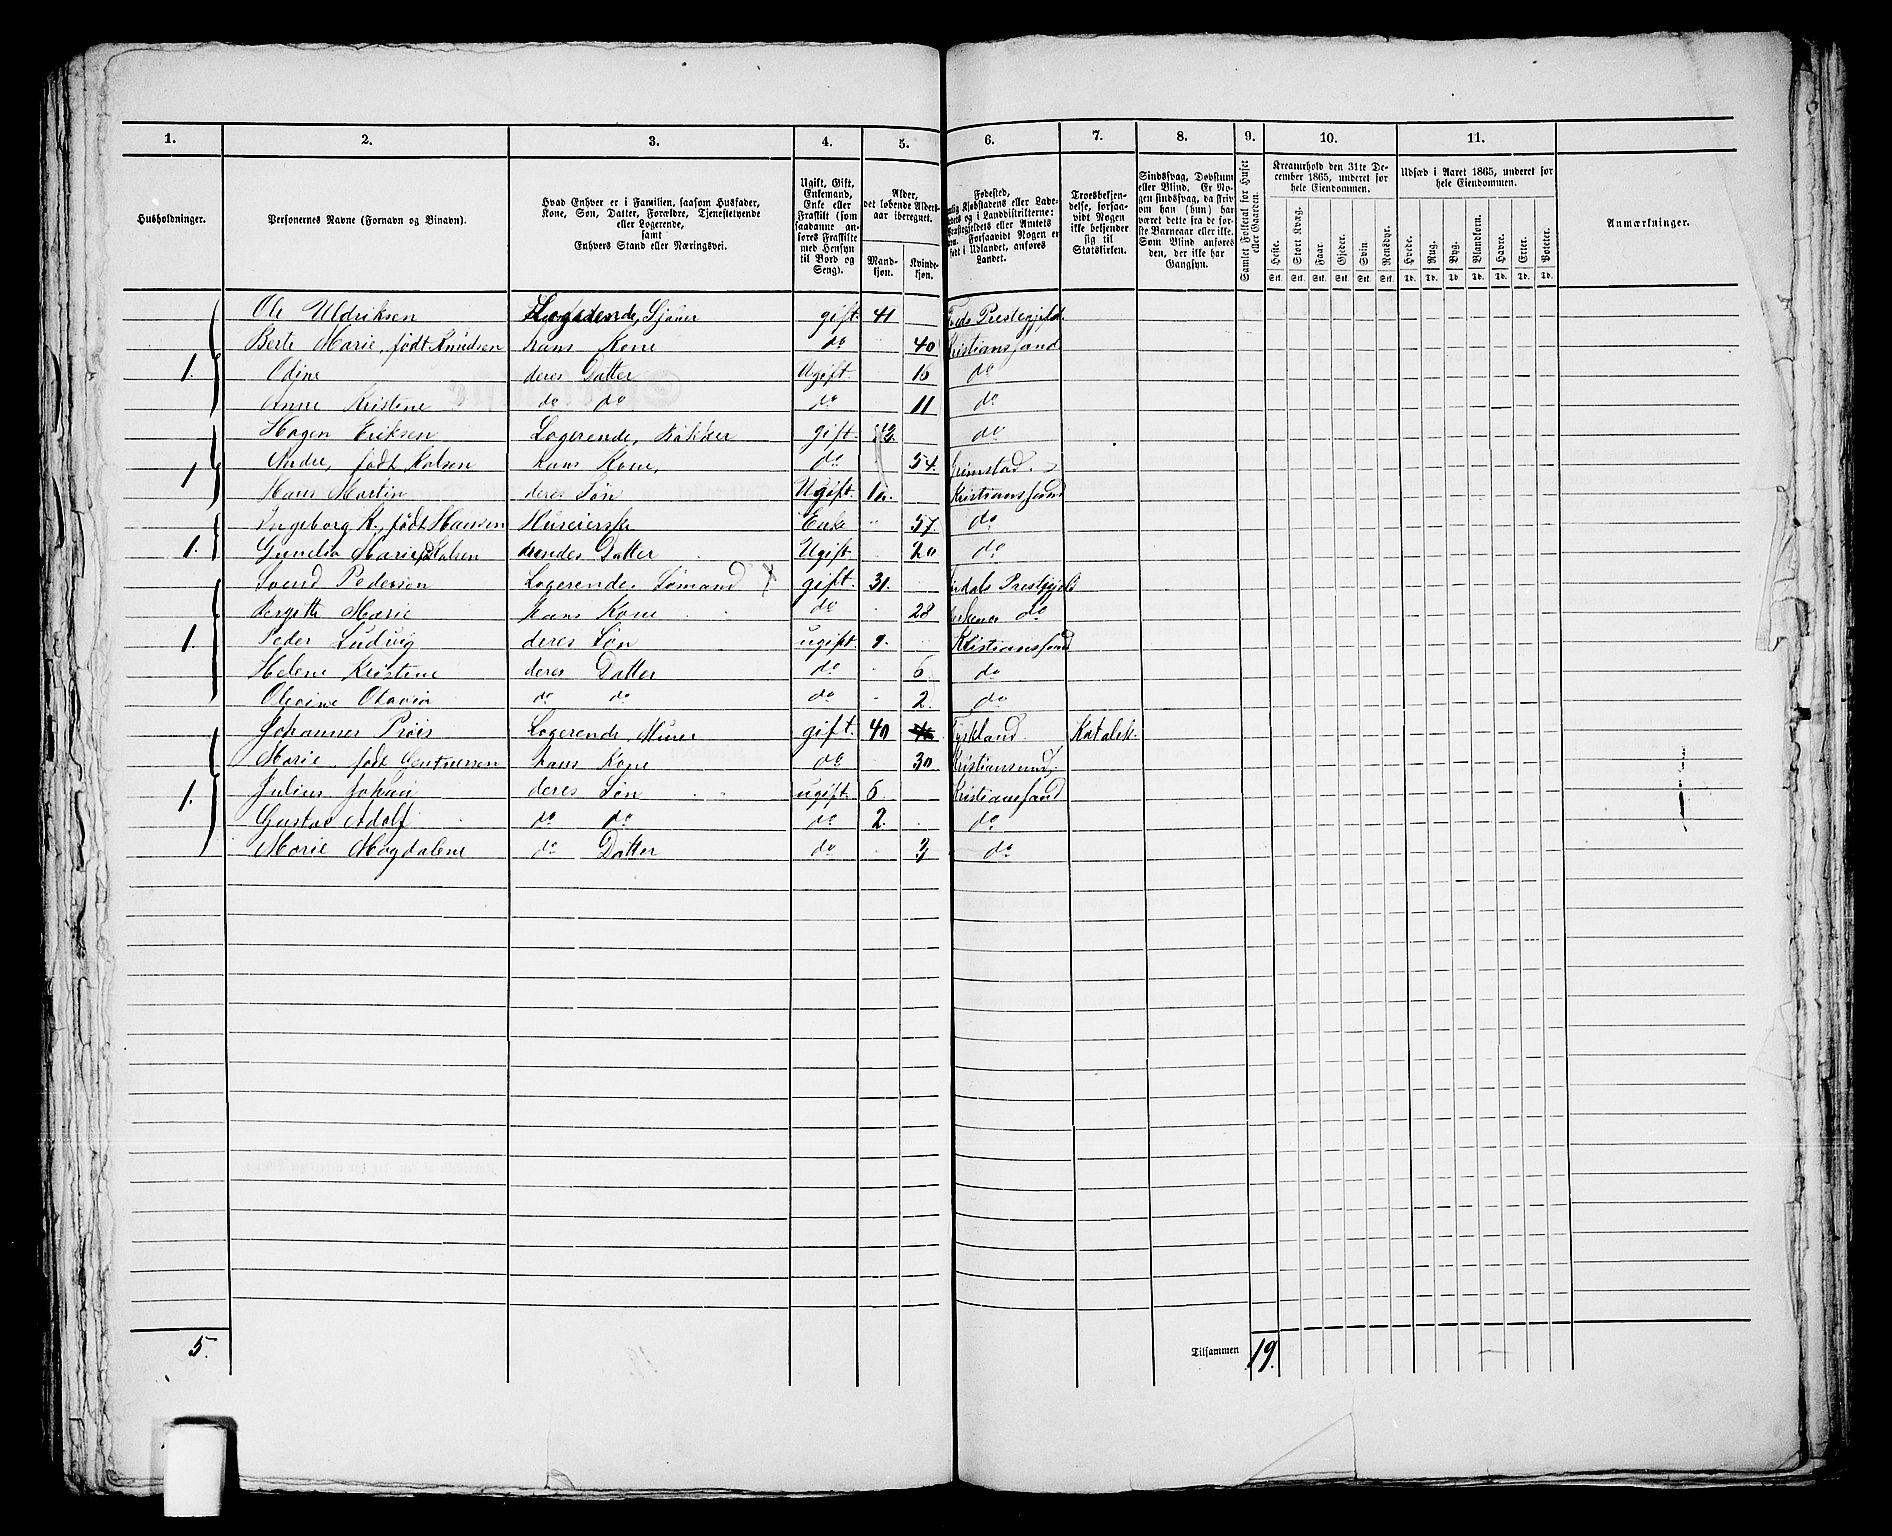 1. 2. 3. 4. 5. 6. 7. 8. 9. 10. 11.
Husholdninger.
Personernes Navne (Fornavn og Binavn).
Hvad Enhver er i Familien, saasom Husfader, Kone, Søn, Datter, Forældre, Tjenestetyende eller Logerende, samt Enhvers Stand eller Næringsvei.
Ugift, Gift, Enkemand, Enke eller Fraskilt (som saadanne anføres Fraskilte med Hensyn til Bord og Seng).
Alder, det løbende Aldersaar iberegnet.
Mandkjøn. Kvindekjøn.
Fødested, Kjøbstadens eller Lade- og i Landdistrikterne: Præstegjeldets eller Annexets Forsaavidt Nogen er født i Udlandet, anføres Landet.
Troesbekjendelse, forsaavidt Nogen ikke bekjender sig til Statskirken.
Sindssvag, Døvstum eller Blind. Er Nogen sindssvag, da skriv om han (hun) har været dette fra de første Barneaar eller ikke. Som Blind anføres den, der ikke har Gangsyn.
Gamlet Folketal for Huset eller Gaarden.
Kreaturhold den 31te December 1865, underet for hele Eiendommen.
Heste. Stort Kvæg. Faar. Gjeder. Svin. Rensdyr.
Udsæd i Aaret 1865, underet for hele Eiendommen.
Hvede. Rug. Byg. Blandkorn. Havre. Erter. Poteter.
Anmærkninger.
Stk. Stk. Stk. Stk. Stk. Stk. Td. Td. Td. Td. Td. Td. Td.
Ole Uldriksen Logerende, Sjouer gift. 41 Præstegjeld
Berte Marie, født Knudsen hans Kone do 40 Kristianssand
1. Odine deres Datter Ugift. 16 do
Anne Kristine do do do 11 do
Hagen Eriksen Logerende, gift. do
født hans Kone, do 54. Grimstad.
1 Hans Martin deres Søn Ugift. Kristianssand
Ingeborg K., født Hansen Huseierske Enke " 57. do
1. Gunelia Marie hendes Datter Ugift 20 do
Svend Pedersen Logerende, Sømand X gift. 31. Præstgjeld
Marie hans Kone do 28 do
1. Peder Ludvig deres Søn ugift. 9. Kristianssand
Helene Kristine deres Datter do 6 do
Olevine Otavia do do do 2. do
Johannes Logerende, Murer gift. 40 Tyskland. Katolik.
Marie, født hans Kone do 30 Kristiansund,
1. Julius Johan deres Søn ugift. 5. Kristianssand
Gustav Adolf do do do 2. do
Marie Magdalene do Datter do 3 do
5. Tilsammen 19.